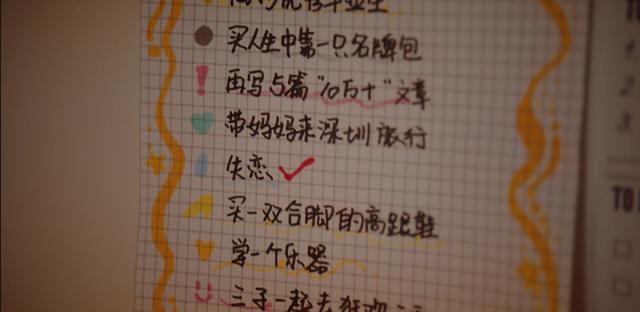 毕业生
买人生中第一只名牌包
再写5篇“10万+”文章
带妈妈来深圳旅行
失恋
买一双合脚的高跟鞋
学一个乐器
三子一起去狂欢
TO